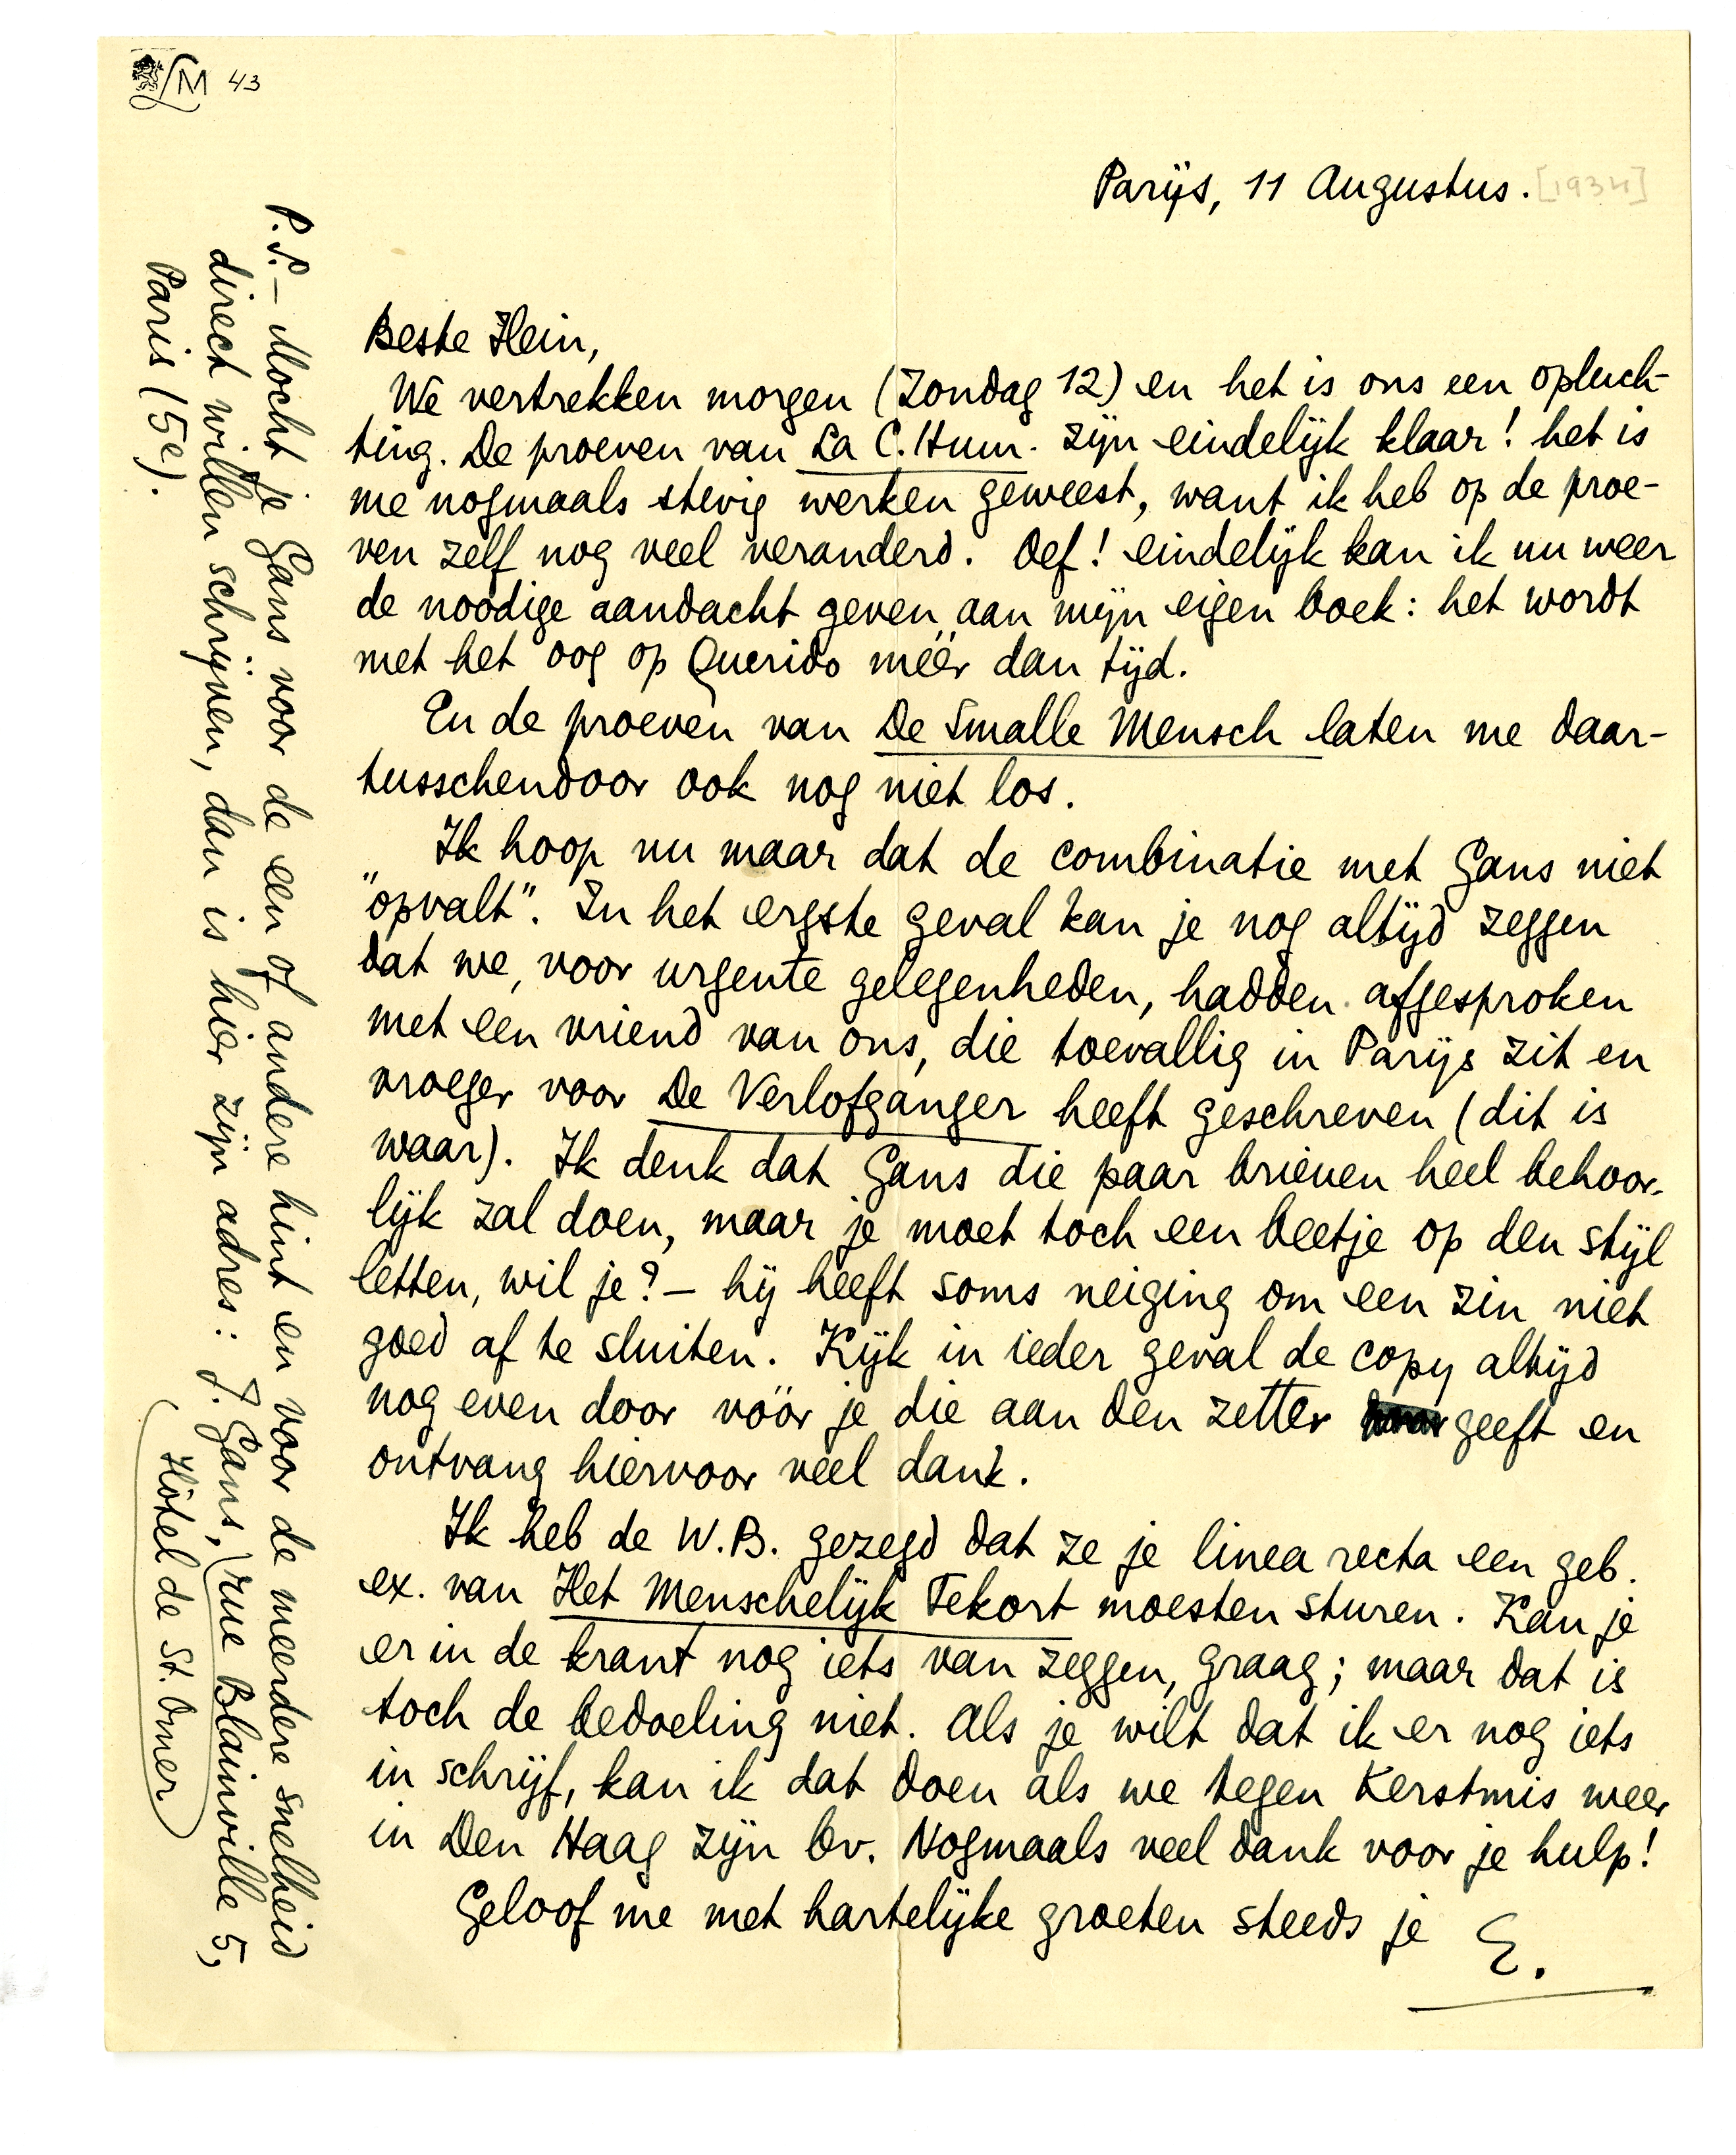 LM 43
Parijs, 11 Augustus. [1934]
Beste Hein,
We vertrekken morgen (Zondag 12) en het is ons een opluch-
ting. De proeven van La C. Hum. zijn eindelijk klaar! het is
me nogmaals stevig werken geweest, want ik heb op de proe-
ven zelf nog veel veranderd. Oef! eindelijk kan ik nu weer
de noodige aandacht geven aan mijn eigen boek: het wordt
met het oog op Querido méér dan tijd.
En de proeven van De Smalle Mensch laten me daar-
tusschendoor ook nog niet los.
Ik hoop nu maar dat de combinatie met Gans niet
"opvalt". In het ergste geval kan je nog altijd zeggen
dat we, voor urgente gelegenheden, hadden afgesproken
met een vriend van ons, die toevallig in Parijs zit en
vroeger voor De Verlofganger heeft geschreven (dit is
waar). Ik denk dat Gans die paar brieven heel behoor-
lijk zal doen, maar je moet toch een beetje op den stijl
letten, wil je? – hij heeft soms neiging om een zin niet
goed af te sluiten. Kijk in ieder geval de copy altijd
nog even door vóór je die aan den zetter geeft en
ontvang hiervoor veel dank.
Ik heb de W.B. gezegd dat ze je linea recta een geb.
ex. van Het Menschelijk Tekort moesten sturen. Kan je
er in de krant nog iets van zeggen, graag; maar dat is
toch de bedoeling niet. Als je wilt dat ik er nog iets
in schrijf, kan ik dat doen als we tegen Kerstmis weer
in Den Haag zijn bv. Nogmaals veel dank voor je hulp!
Geloof me met hartelijke groeten steeds je E.
P.S. – Mocht je Gans voor de een of andere hint en voor de meerdere snelheid
direct willen schrijven, dan is hier zijn adres: J. Gans, rue Blainville 5,
Paris (5e).
Hôtel de St. Omer